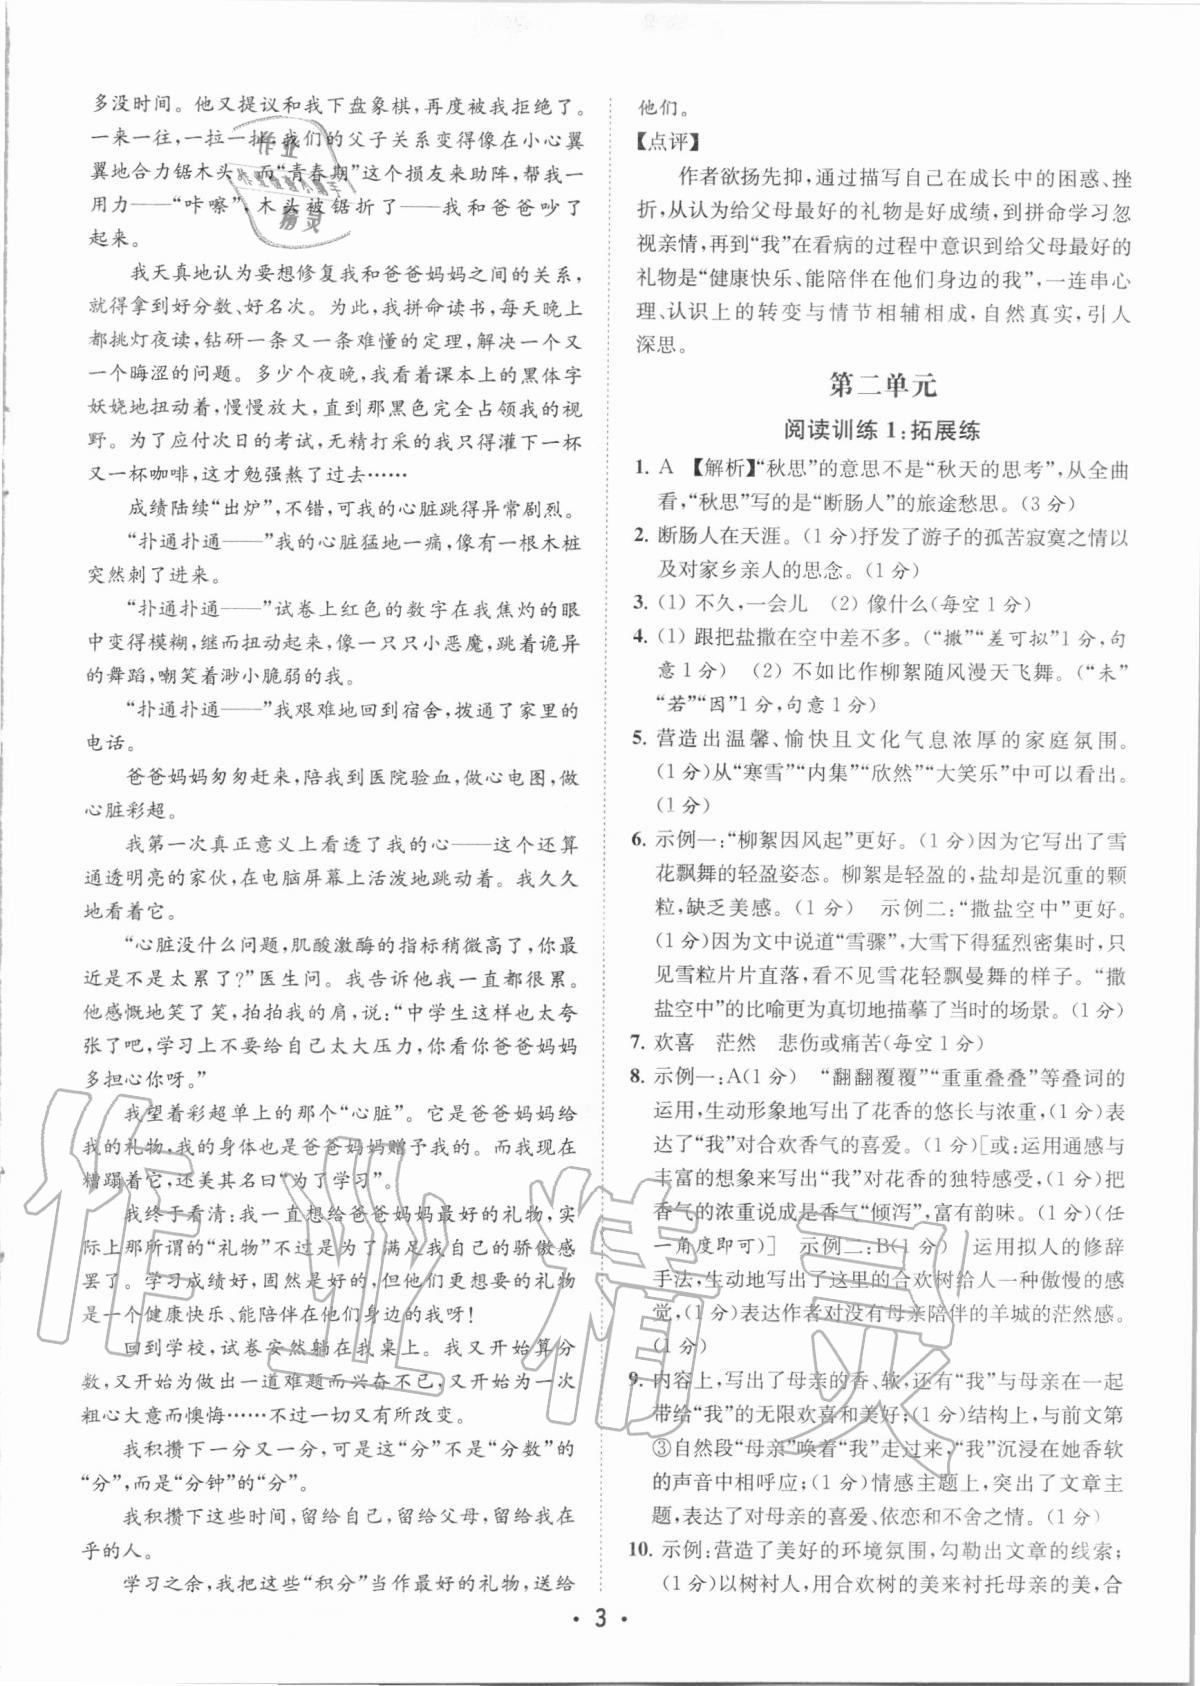 多没时间。他又提议和我下盘象棋，再度被我拒绝了。
一来一往，一拉一扯，我们的父子关系变得像在小心翼
翼地合力锯木头，而“青春期”这个损友来助阵，帮我一
用力——“咔嚓”，木头被锯折了——我和爸爸吵了
起来。
我天真地认为要想修复我和爸爸妈妈之间的关系，
就得拿到好分数、好名次。为此，我拼命读书，每天晚上
都挑灯夜读，钻研一条又一条难懂的定理，解决一个又
一个晦涩的问题。多少个夜晚，我看着课本上的黑体字
妖娆地扭动着，慢慢放大，直到那黑色完全占领我的视
野。为了应付次日的考试，无精打采的我只得灌下一杯
又一杯咖啡，这才勉强熬了过去……
成绩陆续“出炉”，不错，可我的心脏跳得异常剧烈。
“扑通扑通——”我的心脏猛地一痛，像有一根木桩
突然刺了进来。
“扑通扑通——”试卷上红色的数字在我焦灼的眼
中变得模糊，继而扭动起来，像一只只小恶魔，跳着诡异
的舞蹈，嘲笑着渺小脆弱的我。
“扑通扑通——”我艰难地回到宿舍，拨通了家里的
电话。
爸爸妈妈匆匆赶来，陪我到医院验血，做心电图，做
心脏彩超。
我第一次真正意义上看透了我的心——这个还算
通透明亮的家伙，在电脑屏幕上活泼地跳动着。我久久
地看着它。
“心脏没什么问题，肌酸激酶的指标稍微高了，你最
近是不是太累了？”医生问。我告诉他我一直都很累。
他感慨地笑了笑，拍拍我的肩，说：“中学生这样也太夸
张了吧，学习上不要给自己太大压力，你看你爸爸妈妈
多担心你呀。”
我望着彩超单上的那个“心脏”。它是爸爸妈妈给
我的礼物，我的身体也是爸爸妈妈赠予我的。而我现在
糟蹋着它，还美其名曰“为了学习”。
我终于看清：我一直想给爸爸妈妈最好的礼物，实
际上那所谓的“礼物”不过是为了满足我自己的骄傲感
罢了。学习成绩好，固然是好的，但他们更想要的礼物
是一个健康快乐、能陪伴在他们身边的我呀！
回到学校，试卷安然躺在我桌上。我又开始算分
数，又开始为做出一道难题而兴奋不已，又开始为一次
粗心大意而懊悔……不过一切又有所改变。
我积攒下一分又一分，可是这“分”不是“分数”的
“分”，而是“分钟”的“分”。
我积攒下这些时间，留给自己，留给父母，留给我在
乎的人。
学习之余，我把这些“积分”当作最好的礼物，送给
他们。
【点评】
作者欲扬先抑，通过描写自己在成长中的困惑、挫
折，从认为给父母最好的礼物是好成绩，到拼命学习忽
视亲情，再到“我”在看病的过程中意识到给父母最好的
礼物是“健康快乐、能陪伴在他们身边的我”，一连串心
理、认识上的转变与情节相辅相成，自然真实，引人
深思。
第二单元
阅读训练1：拓展练
1. A 【解析】“秋思”的意思不是“秋天的思考”，从全曲
看，“秋思”写的是“断肠人”的旅途愁思。（3分）
2. 断肠人在天涯。（1分）抒发了游子的孤苦寂寞之情以
及对家乡亲人的思念。（1分）
3. （1）不久，一会儿 （2）像什么（每空1分）
4. （1）跟把盐撒在空中差不多。（“撒”“差可拟”1分，句
意1分） （2）不如比作柳絮随风漫天飞舞。（“未”
“若”“因”1分，句意1分）
5. 营造出温馨、愉快且文化气息浓厚的家庭氛围。
（1分）从“寒雪”“内集”“欣然”“大笑乐”中可以看出。
（1分）
6. 示例一：“柳絮因风起”更好。（1分）因为它写出了雪
花飘舞的轻盈姿态。柳絮是轻盈的，盐却是沉重的颗
粒，缺乏美感。（1分） 示例二：“撒盐空中”更好。
（1分）因为文中说道“雪骤”，大雪下得猛烈密集时，只
见雪粒片片直落，看不见雪花轻飘曼舞的样子。“撒
盐空中”的比喻更为真切地描摹了当时的场景。（1分）
7. 欢喜 茫然 悲伤或痛苦（每空1分）
8. 示例一：A（1分） “翻翻覆覆”“重重叠叠”等叠词的
运用，生动形象地写出了花香的悠长与浓重，（1分）表
达了“我”对合欢香气的喜爱。（1分）［或：运用通感与
丰富的想象来写出“我”对花香的独特感受，（1分）把
香气的浓重说成是香气“倾泻”，富有韵味。（1分）（任
一角度即可）］ 示例二：B（1分） 运用拟人的修辞
手法，生动地写出了这里的合欢树给人一种傲慢的感
觉，（1分）表达作者对没有母亲陪伴的羊城的茫然感。
（1分）
9. 内容上，写出了母亲的香、软，还有“我”与母亲在一起
带给“我”的无限欢喜和美好；（1分）结构上，与前文第
③自然段“母亲”唤着“我”走过来，“我”沉浸在她香软
的声音中相呼应；（1分）情感主题上，突出了文章主
题，表达了对母亲的喜爱、依恋和不舍之情。（1分）
10. 示例：营造了美好的环境氛围，勾勒出文章的线索；
（1分）以树衬人，用合欢树的美来衬托母亲的美，合
· 3 ·
作业精灵